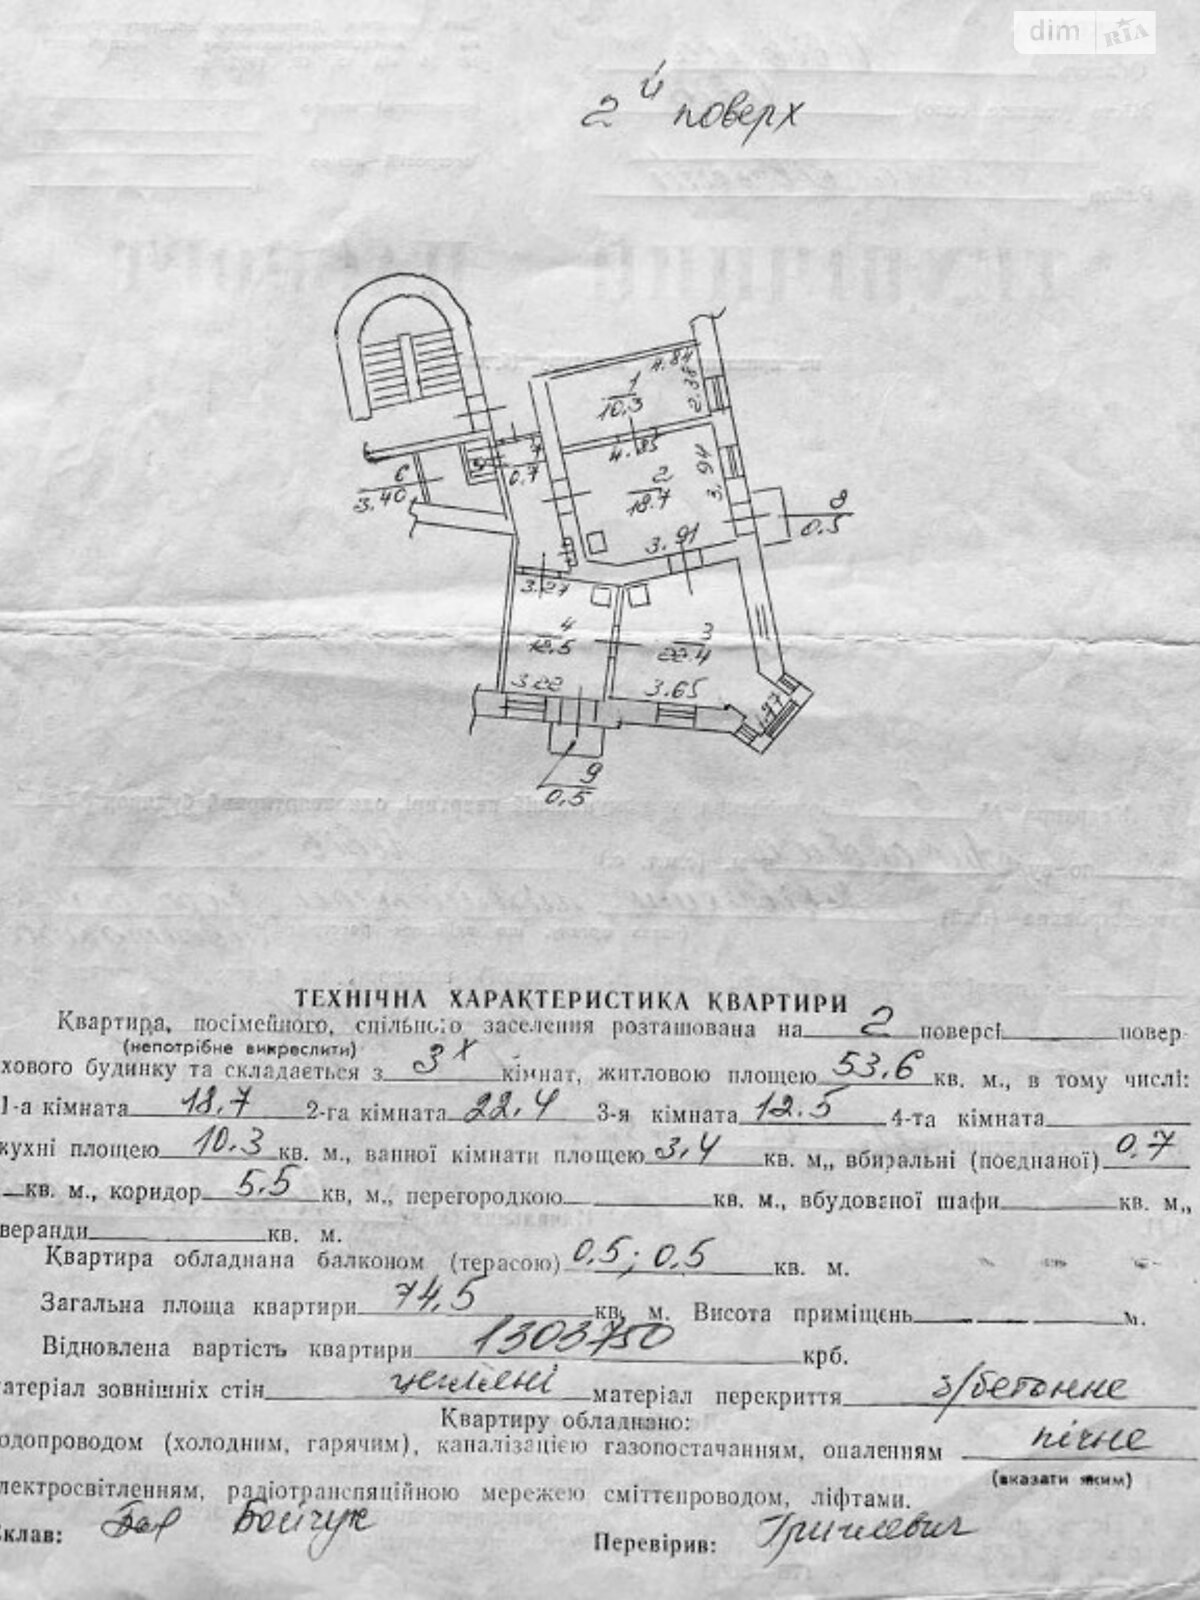 dim RIA
2й поверх
4.84
1
10.3
2.38
4.85
7
0.7
5
6
3.40
2
18.7
3.94
8
0.5
3.91
3.27
4
12.5
3
22.4
3.22
3.65
1.97
9
0.5
ТЕХНІЧНА ХАРАКТЕРИСТИКА КВАРТИРИ
Квартира, посімейного, спільного заселення розташована на 2 поверсі повер-
(непотрібне викреслити)
хового будинку та складається з 3х кімнат, житловою площею 53.6 кв. м., в тому числі:
1-а кімната 18.7 2-га кімната 22.4 3-я кімната 12.5 4-та кімната
кухні площею 10.3 кв. м., ванної кімнати площею 3,4 кв. м., вбиральні (поєднаної) 0.7
кв. м., коридор 5.5 кв, м., перегородкою кв. м., вбудованої шафи кв. м.,
веранди кв. м.
Квартира обладнана балконом (терасою) 0,5; 0.5 кв. м.
Загальна площа квартири 74,5 кв. м. Висота приміщень м.
Відновлена вартість квартири 1303750 крб.
атеріал зовнішніх стін цегляні матеріал перекриття з/бетонне
Квартиру обладнано:
одопроводом (холодним, гарячим), каналізацією газопостачанням, опаленням пічне
(вказати яким)
лектросвітленням, радіотрансляційною мережею сміттєпроводом, ліфтами.
клав: Бойчук Перевірив: